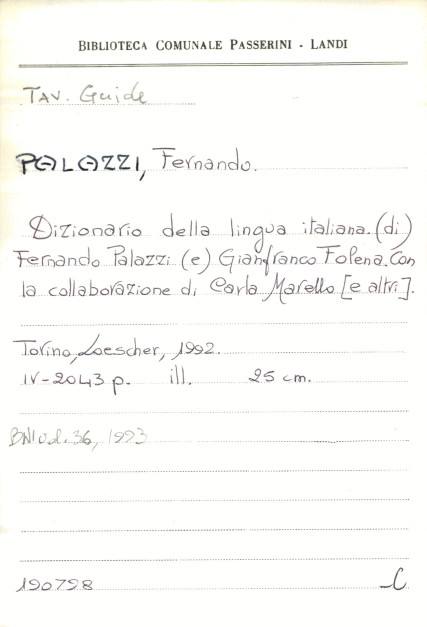 BIBLIOTECA COMUNALE PASSERINI - LANDI
TAV. Guide
PALAZZI, Fernando.
Dizionario della lingua italiana. (di)
Fernando Palazzi (e) Gianfranco Folena. Con
la collaborazione di Carla Marello [e altri].
Torino, Loescher, 1992.
IV-2043 p. ill. 25 cm.
36, 1993
190798